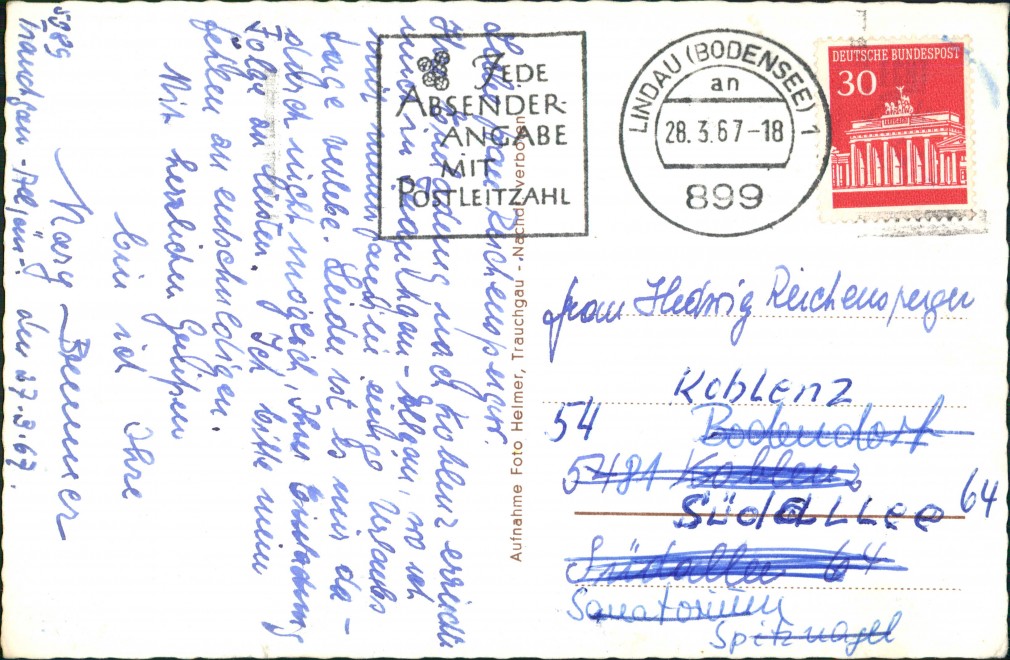 8959
Trauchgau-Allgäu, den 27.3.67.
Sehr geehrte Frau Reichensperger,
Ihre Einladung nach Koblenz erreichte
mich in Trauchgau-Allgäu, wo ich
mit meiner Familie einige Urlaubs
tage verlebe. Leider ist es mir da-
durch nicht möglich, Ihrer Einladung
Folge zu leisten. Ich bitte mein
Fehlen zu entschuldigen.
Mit herzlichen Grüßen
bin ich Ihre
Brenner
JEDE
ABSENDER-
ANGABE
MIT
POSTLEITZAHL
LINDAU (BODENSEE) 1
an
28.3.67-18
899
DEUTSCHE BUNDESPOST
30
Aufnahme Foto Helmer, Trauchgau - Nachdruck verboten
Frau Hedwig Reichensperger
Koblenz
54 Bodendorf
5481 Koblenz
Südallee 64
Südallee 64
Sanatorium
Spitznagel